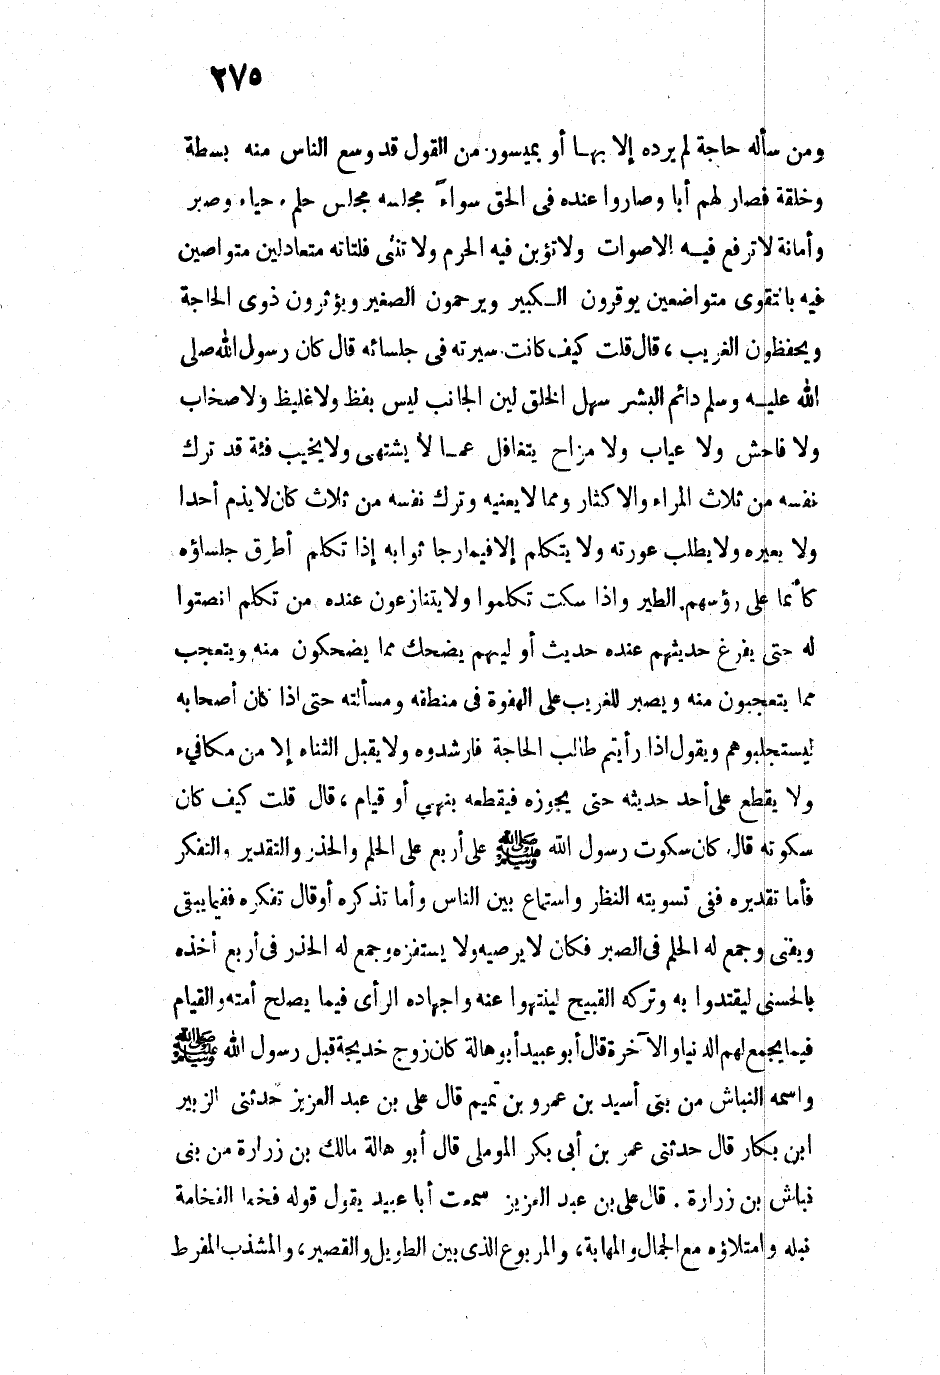 ٢٧٥
ومن سأله حاجة لم يرده إلا بهـا أو بميسور من القول قد وسع الناس منه بسطة
وخلقة فصار لهم أبا وصاروا عنده فى الحق سواءً مجلسه مجلس حلم، حياء وصبر
وأمانة لاترفع فيـه الاصوات ولاتؤبن فيه الحرم ولا تنثى فلتاته متعادلين متواصين
فيه بالتقوى متواضعين يوقرون الـكبير ويرحمون الصغير ويؤثرون ذوى الحاجة
ويحفظون الغريب ، قال قلت كيف كانت سيرته فى جلسائه قال كان رسول الله صلى
الله عليـه وسلم دائم البشر سهل الخلق لين الجانب ليس بفظ ولا غليظ ولاصخاب
ولا فاحش ولا عياب ولا مزاح يتغافل عمـا لا يشتهى ولايخيب فئة قد ترك
نفسه من ثلاث المراء والاكثار ومما لايعنيه وترك نفسه من ثلاث كان لايذم أحدا
ولا يعيره ولايطلب عورته ولا يتكلم إلافيمارجا ثوابه إذا تكلم أطرق جلساؤه
كأنما على رؤسهم الطير واذا سكت تكلموا ولايتنازعون عنده من تكلم انصتوا
له حتى يفرغ حديثهم عنده حديث أو ليهم يضحك مما يضحكون منه ويتعجب
مما يتعجبون منه ويصبر للغريب على الهفوة فى منطقه ومسألته حتى اذا كان أصحابه
ليستجلبوهم ويقول اذا رأيتم طالب الحاجة فارشدوه ولايقبل الثناء إلا من مكافىء
ولا يقطع على أحد حديثه حتى يجوزه فيقطعه بنهي أو قيام ، قال قلت كيف كان
سكوته قال كان سكوت رسول الله ﷺ على أربع على الحلم والحذر والتقدير والتفكر
فأما تقديره ففى تسويته النظر واستماع بين الناس وأما تذكره أوقال تفكره ففيما يبقى
ويفنى وجمع له الحلم فى الصبر فكان لايرصيه ولا يستفزه وجمع له الحذر فى أربع أخذه
بالحسنى ليقتدوا به وتركه القبيح لينتهوا عنه واجهاده الرأى فيما يصلح أمته والقيام
فيما يجمع لهم الدنيا والآخرة قال أبو عبيد أبو هالة كان زوج خديجة قبل رسول الله ﷺ
واسمه النباش من بنى أسيد بن عمرو بن تميم قال على بن عبد العزيز حدثنى الزبير
ابن بكار قال حدثنى عمر بن أبى بكر الموملى قال أبو هالة مالك بن زرارة من بنى
نباش بن زرارة . قال على بن عبد العزيز سمعت أبا عبيد يقول قوله فخما الفخامة
نبله وامتلاؤه مع الجمال والمهابة، والمربوع الذى بين الطويل والقصير، والمشذب المفرط